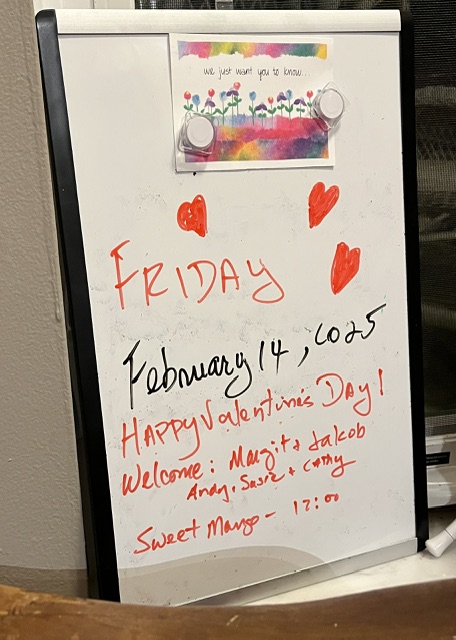 we just want you to know...
FRIDAY
February 14, 2025
HAPPY Valentine's DAY!
Welcome: Margit + Jakob
Andy, Susie + Cathy
Sweet Mango - 12:00